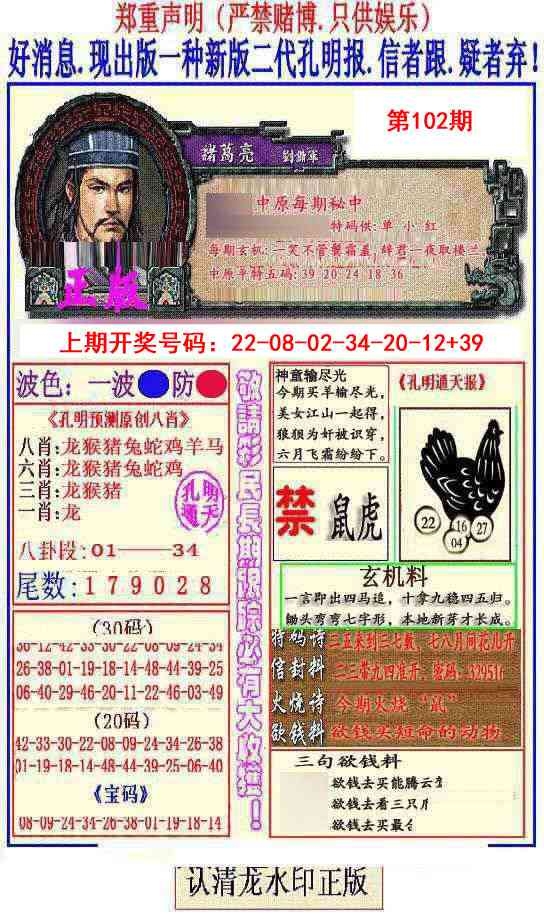 郑重声明（严禁赌博.只供娱乐）
好消息.现出版一种新版二代孔明报.信者跟.疑者弃!
第102期
諸葛亮 劉備軍
中原每期秘中
特码供:单 小 红
每期玄机:一笑不管 霜盖 辞君一夜取楼兰
中原平特五码:39 20 24 18 36
正版
上期开奖号码：22-08-02-34-20-12+39
波色：一波 防
《孔明预测原创八肖》
八肖:龙猴猪兔蛇鸡羊马
六肖:龙猴猪兔蛇鸡
三肖:龙猴猪
一肖:龙
孔明通天
八卦段:01——34
尾数:179028
(30码)
30-12-42-33-30-22-08-09-24-34
26-38-01-19-18-14-48-44-39-25
06-40-29-46-20-11-22-46-03-49
(20码)
42-33-30-22-08-09-24-34-26-38
01-19-18-14-48-44-39-25-06-40
《宝码》
08-09-24-34-26-38-01-19-18-14
敬請彩民長期跟踪必有大收獲！
神童输尽光
今期买羊输尽光,
美女江山一起得,
狼狈为奸被识穿,
六月飞霜纷纷下。
《孔明通天报》
22 16 27
04
禁 鼠虎
玄机料
一言即出四马追，十拿九稳四五归。
锄头弯弯七字形，本地新芽才长成。
特码诗 三五来到三七载，七八月间花儿开
信封料 二三带九四准开，密码：329516
火烧诗 今期火烧“鼠”
欲钱料 欲钱买短命的动物
三句欲钱料
欲钱去买能腾云
欲钱去看三只
欲钱去买最
认清龙水印正版